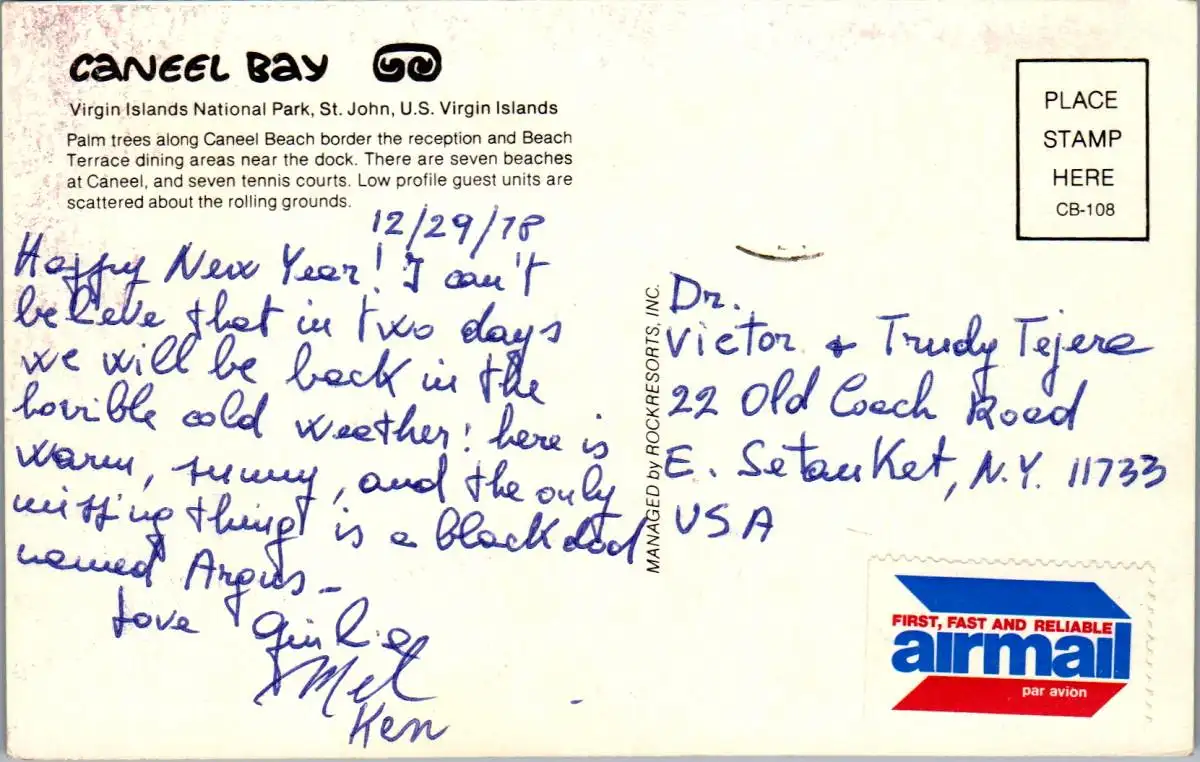 CANEEL BAY
Virgin Islands National Park, St. John, U.S. Virgin Islands
Palm trees along Caneel Beach border the reception and Beach
Terrace dining areas near the dock. There are seven beaches
at Caneel, and seven tennis courts. Low profile guest units are
scattered about the rolling grounds.
12/29/78
Happy New Year! I can't
believe that in two days
we will be back in the
horrible cold weather! here is
warm, sunny, and the only
missing thing is a black dod
named Argus -
Love
Mel
Ken
MANAGED by ROCKRESORTS, INC.
PLACE
STAMP
HERE
CB-108
Dr.
Victor & Trudy Tejera
22 Old Coach Road
E. Setauket, N.Y. 11733
USA
FIRST, FAST AND RELIABLE
airmail
par avion